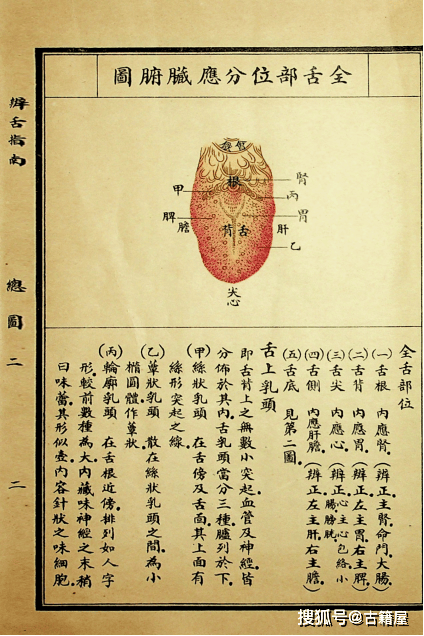 全舌部位分應臟腑圖
根
腎
丙
胃
肝
乙
甲
脾
膽
舌背
尖
心
全舌部位
(一)舌根 內應腎。(辨正主腎命門大腸)
(二)舌背 內應胃。(辨正左主胃右主脾)
(三)舌尖 內應心。(辨正心主心包絡小腸膀胱)
(四)舌側 內應肝膽(辨正左主肝右主膽)
(五)舌底 見第二圖。
舌上乳頭
即舌背上之無數小突起血管及神經皆
分佈於其內舌乳頭當分三種臚列於下。
(甲)絲狀乳頭 在舌傍及舌面其上面有
絲形突起之線。
(乙)蕈狀乳頭 散在絲狀乳頭之間。為小
橢圓體作蕈狀
(丙)輪廓乳頭 在舌根近傍。排列如人字
形。較前數種為大。內藏味神經之末梢
曰味蕾。其形似壺。內容針狀之味細胞。
辨舌指南
總圖
二
二
搜狐号@古籍屋